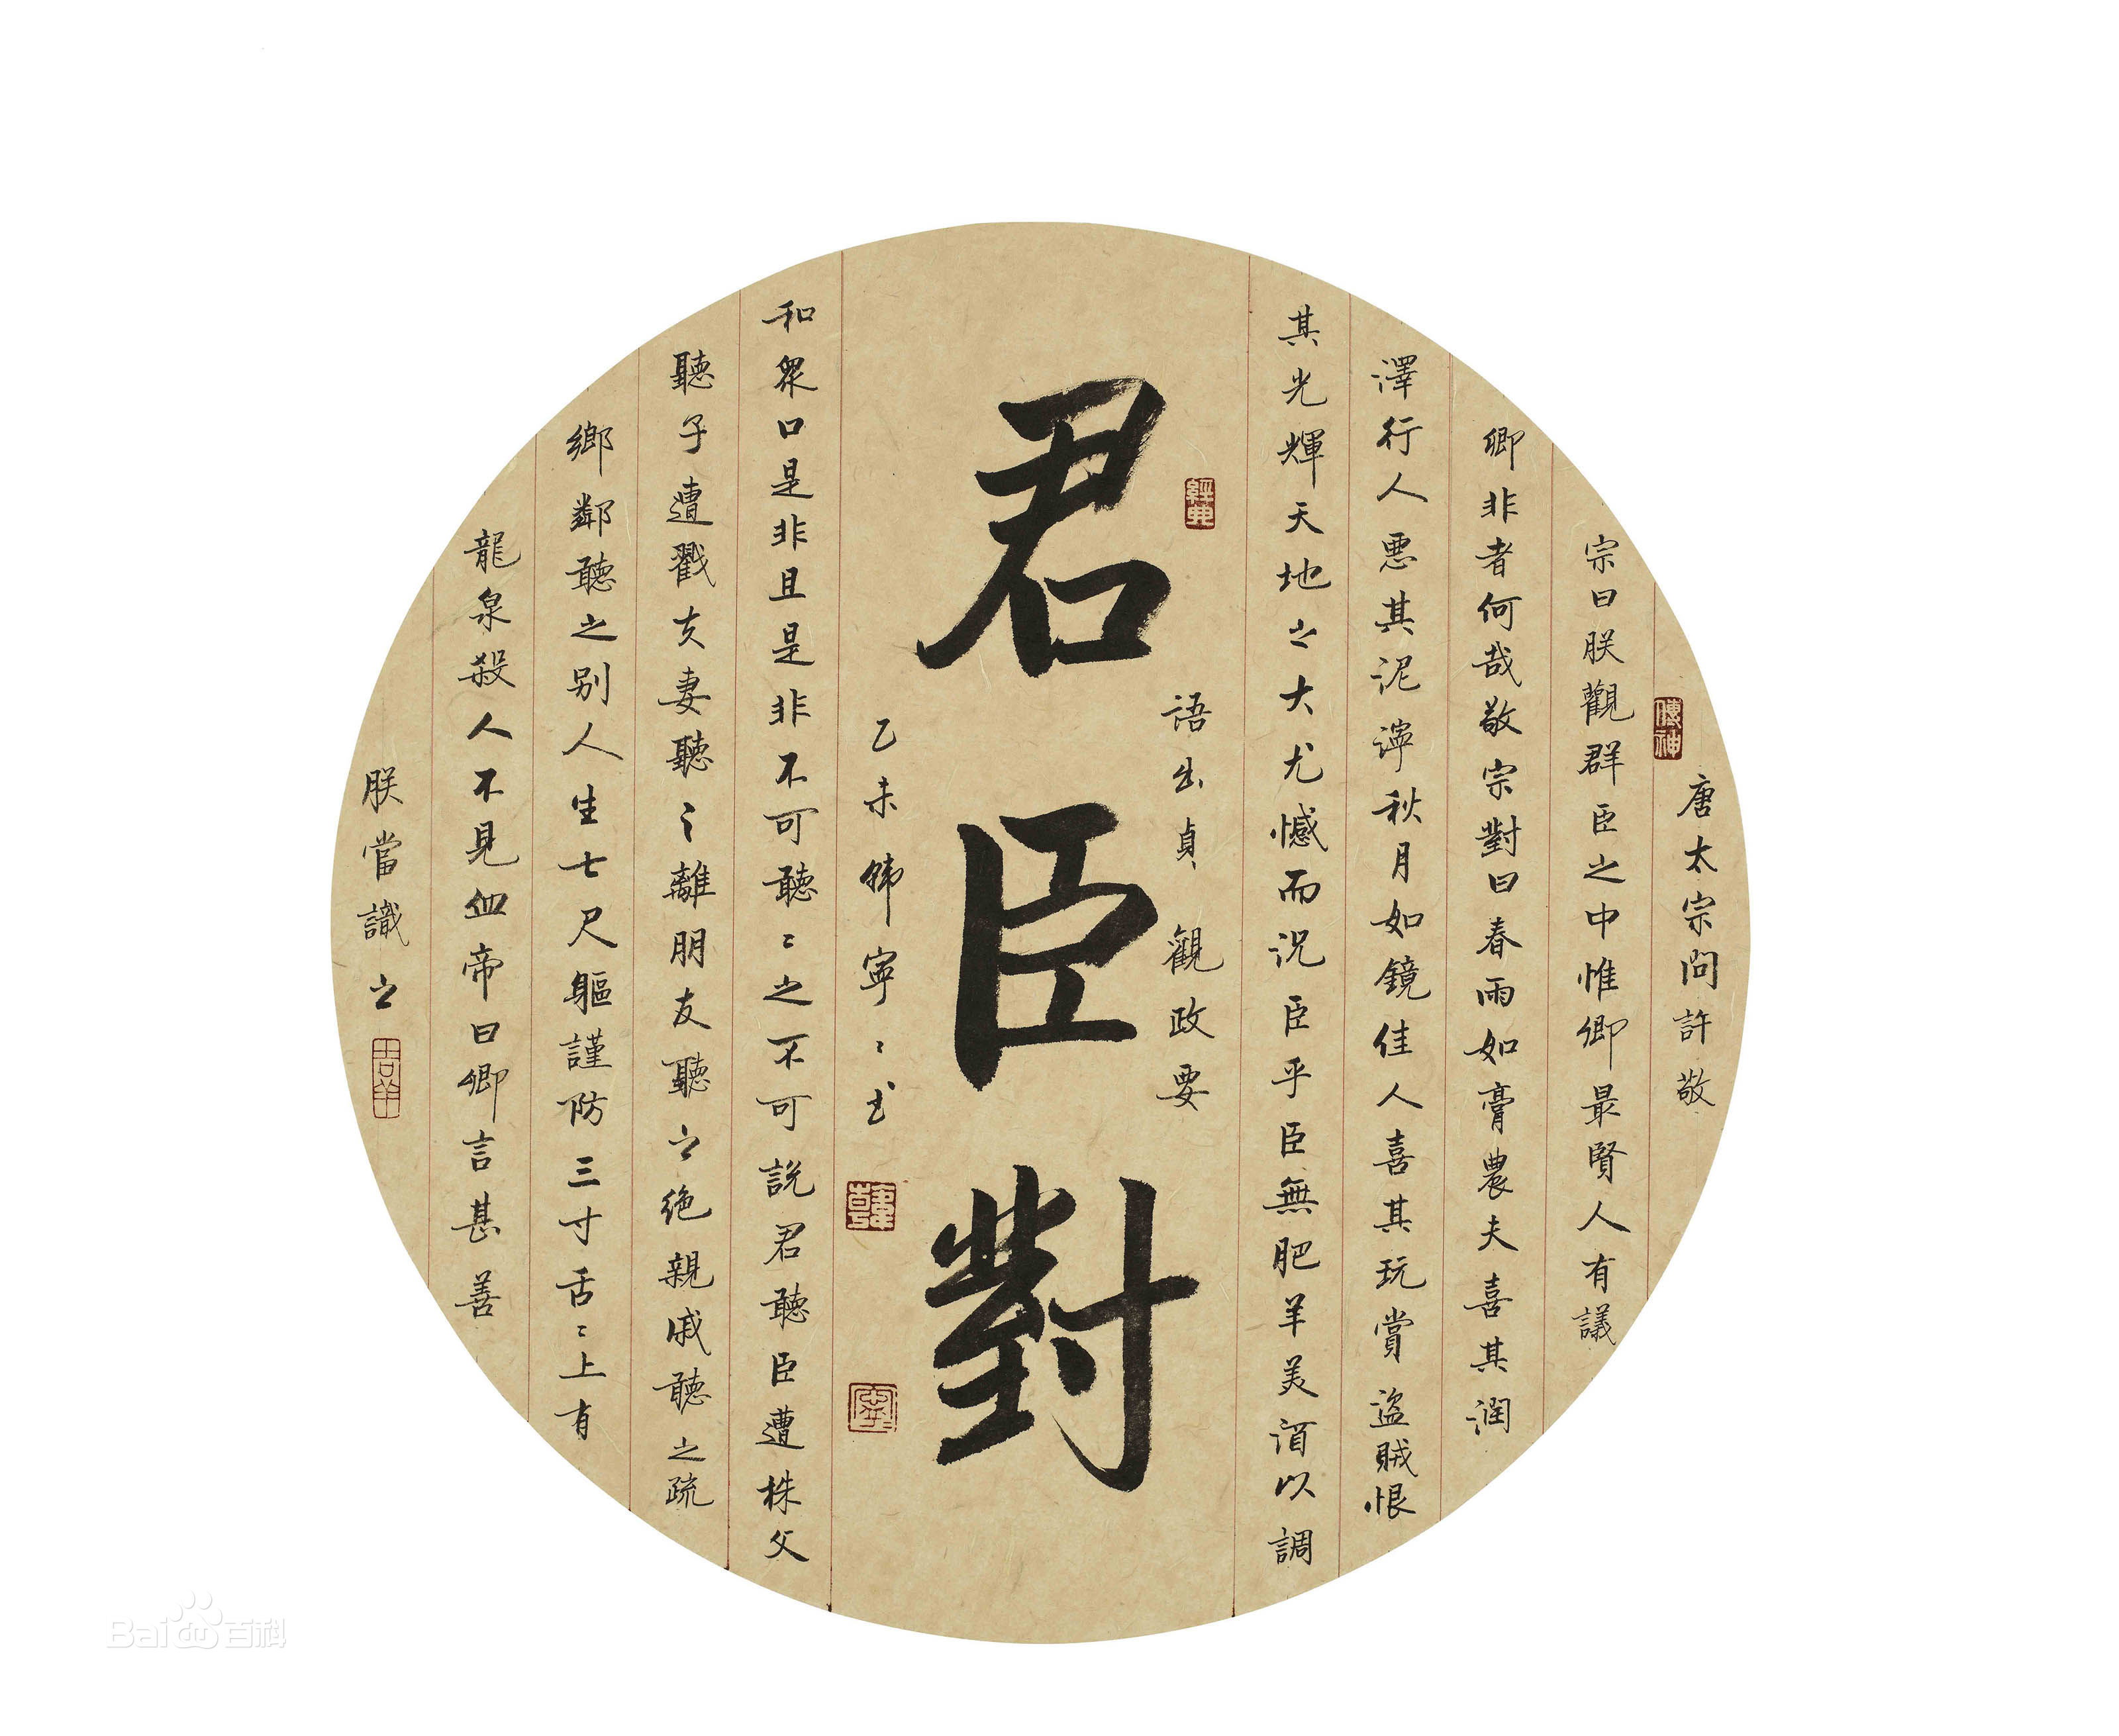 唐太宗問許敬
宗曰朕觀群臣之中惟卿最賢人有議
卿非者何哉敬宗對曰春雨如膏農夫喜其潤
澤行人惡其泥濘秋月如鏡佳人喜其玩賞盜賊恨
其光輝天地之大尤憾而況臣乎臣無肥羊美酒以調
語出貞觀政要
君臣對
乙未韓寧〻書
和眾口是非且是非不可聽〻之不可説君聽臣遭株父
聽子遭戮夫妻聽〻離朋友聽之絶親戚聽之疏
鄉鄰聽之别人生七尺軀謹防三寸舌〻上有
龍泉殺人不見血帝曰卿言甚善
朕當識之
傳神
經典
Bai百科